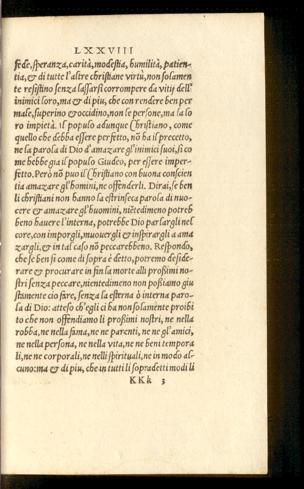 LXXVIII
fede, speranza, carità, modestia, humilità, patien-
tia, & di tutte l'altre christiane virtù, non solamen
te resistino senza lassarsi corrompere da vitij dell'
inimici loro, ma & di piu, che con rendere ben per
male, superino & occidino, non le persone, ma la lo
ro impietà. Il populo adunque Christiano, come
quello che debba essere perfetto, nõ ha il precetto,
ne la parola di Dio d'amazare gl'inimici suoi, sì co
me hebbe gia il populo Giudeo, per essere imper-
fetto. Però nõ puo il Christiano con buona conscien
tia amazare gl'homini, ne offenderli. Dirai, se ben
li christiani non hanno la estrinseca parola di nuo-
cere & amazare gl'huomini, niẽtedimeno potreb
beno hauere l'interna, potrebbe Dio parlargli nel
core, con imporgli, muouergli & inspirargli a ama
zargli, & in tal caso nõ peccarebbeno. Respondo,
che se ben si come di sopra è detto, potremo deside-
rare & procurare in fin la morte alli proßimi no-
stri senza peccare, nientedimeno non poßiamo giu
stamente cio fare, senza la esterna ò interna paro-
la di Dio: atteso ch'egli ci ha non solamente proibi
to che non offendiamo li proßimi nostri, ne nella
robba, ne nella fama, ne ne parenti, ne ne gl'amici,
ne nella persona, ne nella vita, ne ne beni tempora
li, ne ne corporali, ne nelli spirituali, ne in modo al-
cuno: ma & di piu, che in tutti li sopradetti modi li
KKk 3